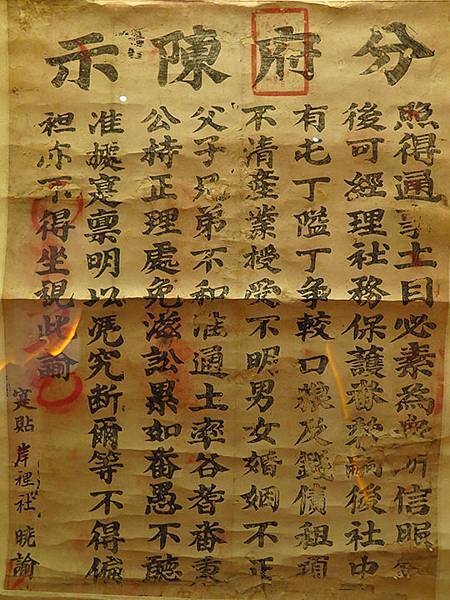 分府陳示
照得通事土目必素為衆所信服然
後可經理社務保護番黎嗣後社中
有屯丁隘丁爭較口糧及錢債租項
不清產業授受不明男女婚姻不正
父子兄弟不和准通土率各耆番秉
公持正理處免滋訟累如番愚不聽
准據寔禀明以凭究断爾等不得偏
袒亦不得坐視此諭
寔貼岸裡社曉諭